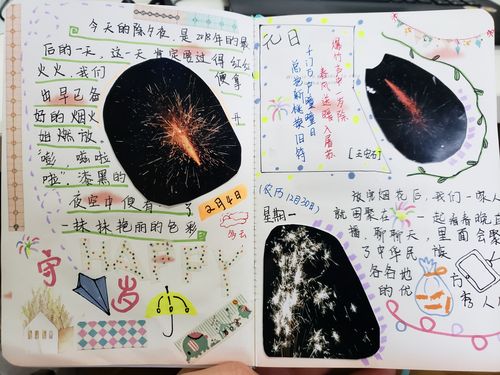 今天的除夕夜,是2018年的最
后的一天,这一天肯定要过得红红
火火,我们便拿
出早已备
好的烟火开
始燃放,
"嘭,啪啦
啦",漆黑的
夜空中便有了
一抹抹艳丽的色彩
2月4日
HAPPY
守岁
元日
爆竹声中一岁除
春风送暖入屠苏
千门万户曈曈日
总把新桃换旧符
[王安石]
(农历12月30日)
星期一
放完烟花后,我们一家人
就围聚在一起看春晚直
播,聊聊天,里面会聚
了中华民族
各名地方
的优秀人